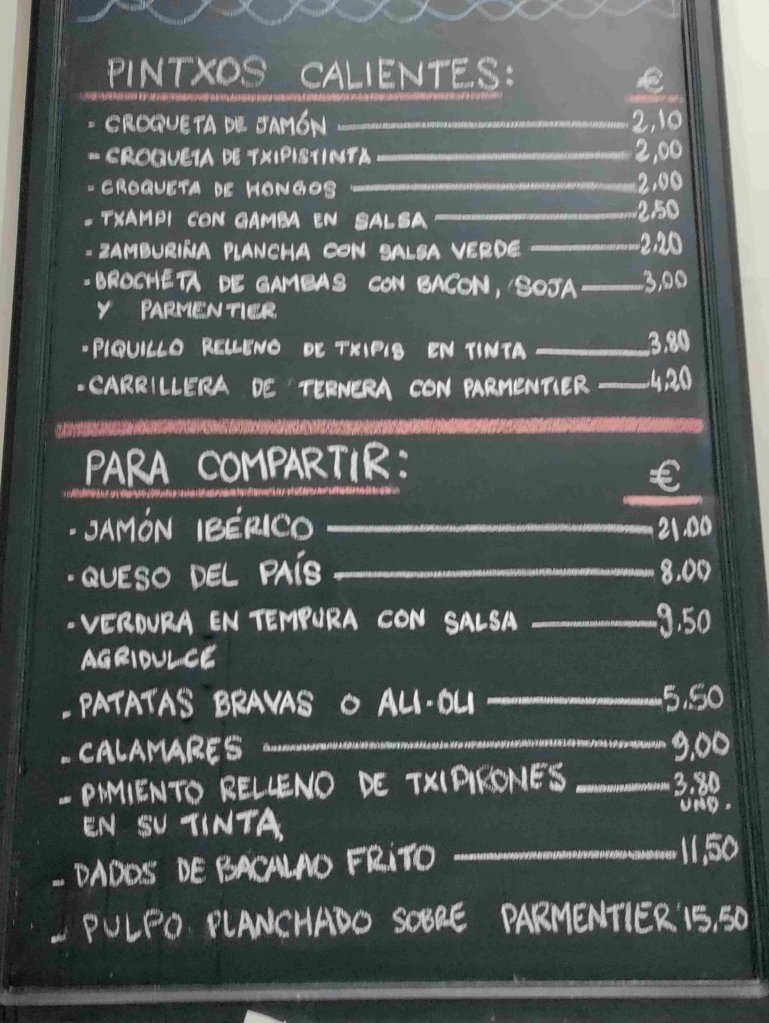 PINTXOS CALIENTES: €
- CROQUETA DE JAMÓN 2,10
- CROQUETA DE TXIPISTINTA 2,00
- CROQUETA DE HONGOS 2,00
- TXAMPI CON GAMBA EN SALSA 2.50
- ZAMBURIÑA PLANCHA CON SALSA VERDE 2.20
- BROCHETA DE GAMBAS CON BACON, SOJA 3,00
Y PARMENTIER
- PIQUILLO RELLENO DE TXIPIS EN TINTA 3.80
- CARRILLERA DE TERNERA CON PARMENTIER 4,20
PARA COMPARTIR: €
- JAMÓN IBÉRICO 21.00
- QUESO DEL PAÍS 8.00
- VERDURA EN TEMPURA CON SALSA 9.50
AGRIDULCE
- PATATAS BRAVAS O ALI-OLI 5.50
- CALAMARES 9,00
- PIMIENTO RELLENO DE TXIPIRONES 3.80
EN SU TINTA UND.
- DADOS DE BACALAO FRITO 11,50
- PULPO PLANCHADO SOBRE PARMENTIER 15,50